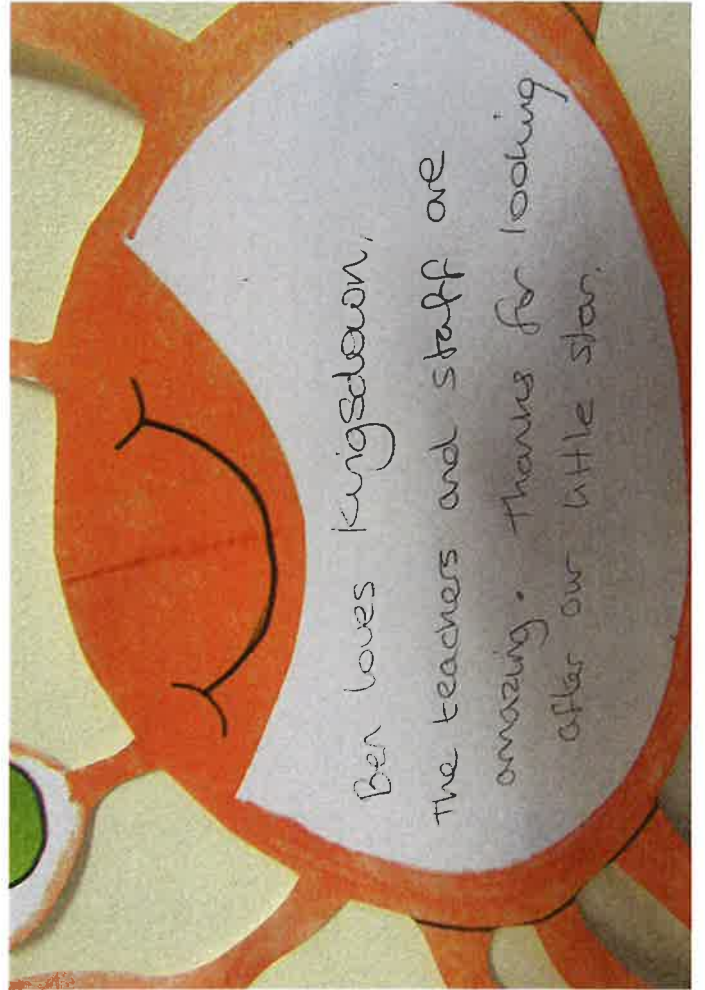 Ben loves Kingsdown,
The teachers and staff are
amazing. Thanks for looking
after our little star.